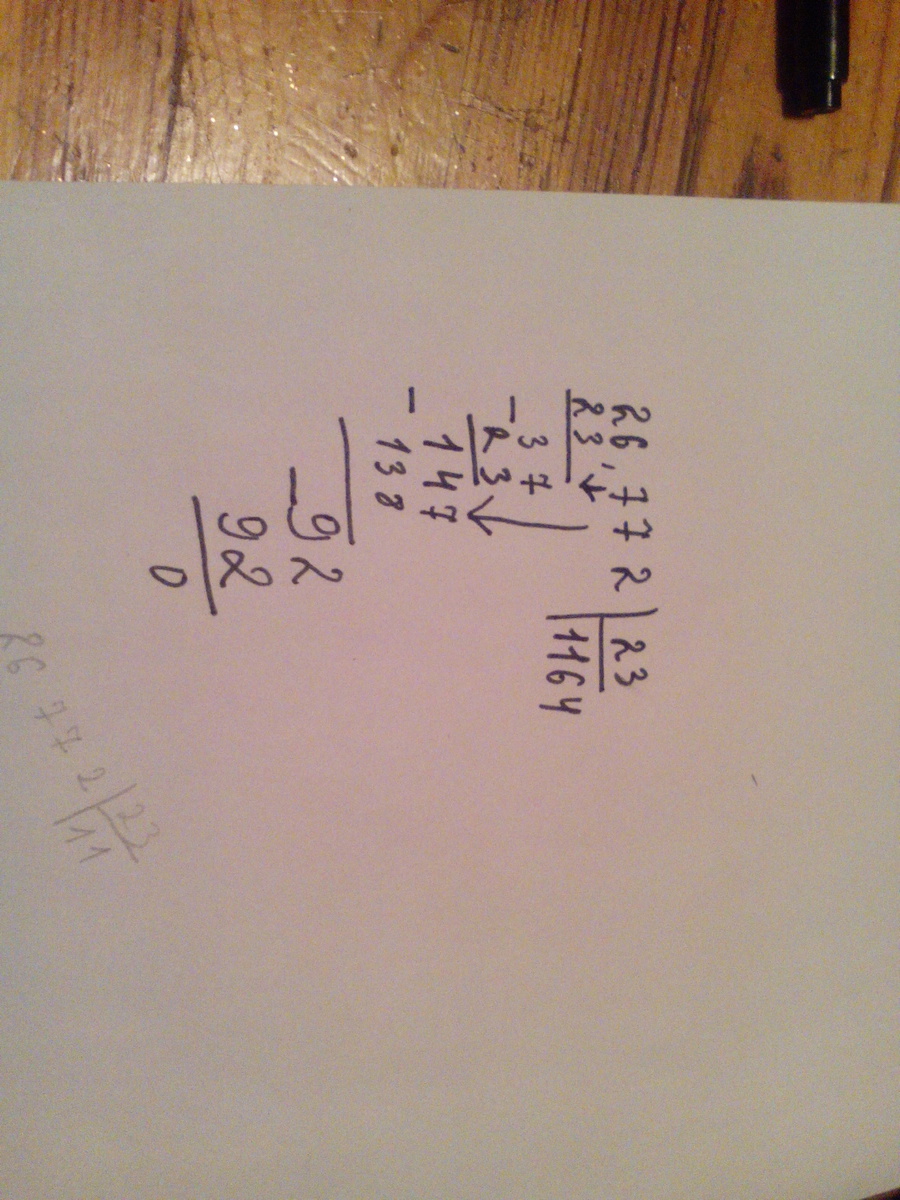 26772 | 23
23 | 1164
- 37
23
147
- 138
- 92
92
0
26772 | 23
| 11